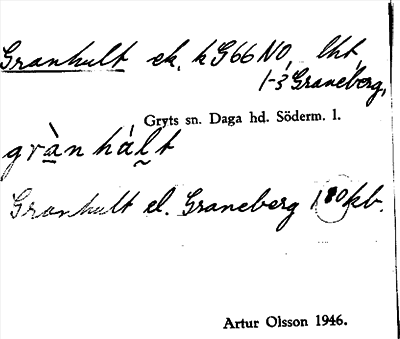 Granhult ek. k G66 NO, lht,
1-3 Graneberg,
Gryts sn. Daga hd. Söderm. l.
gràn hál̰t
Granhult el. Graneberg 180 kb.
Artur Olsson 1946.